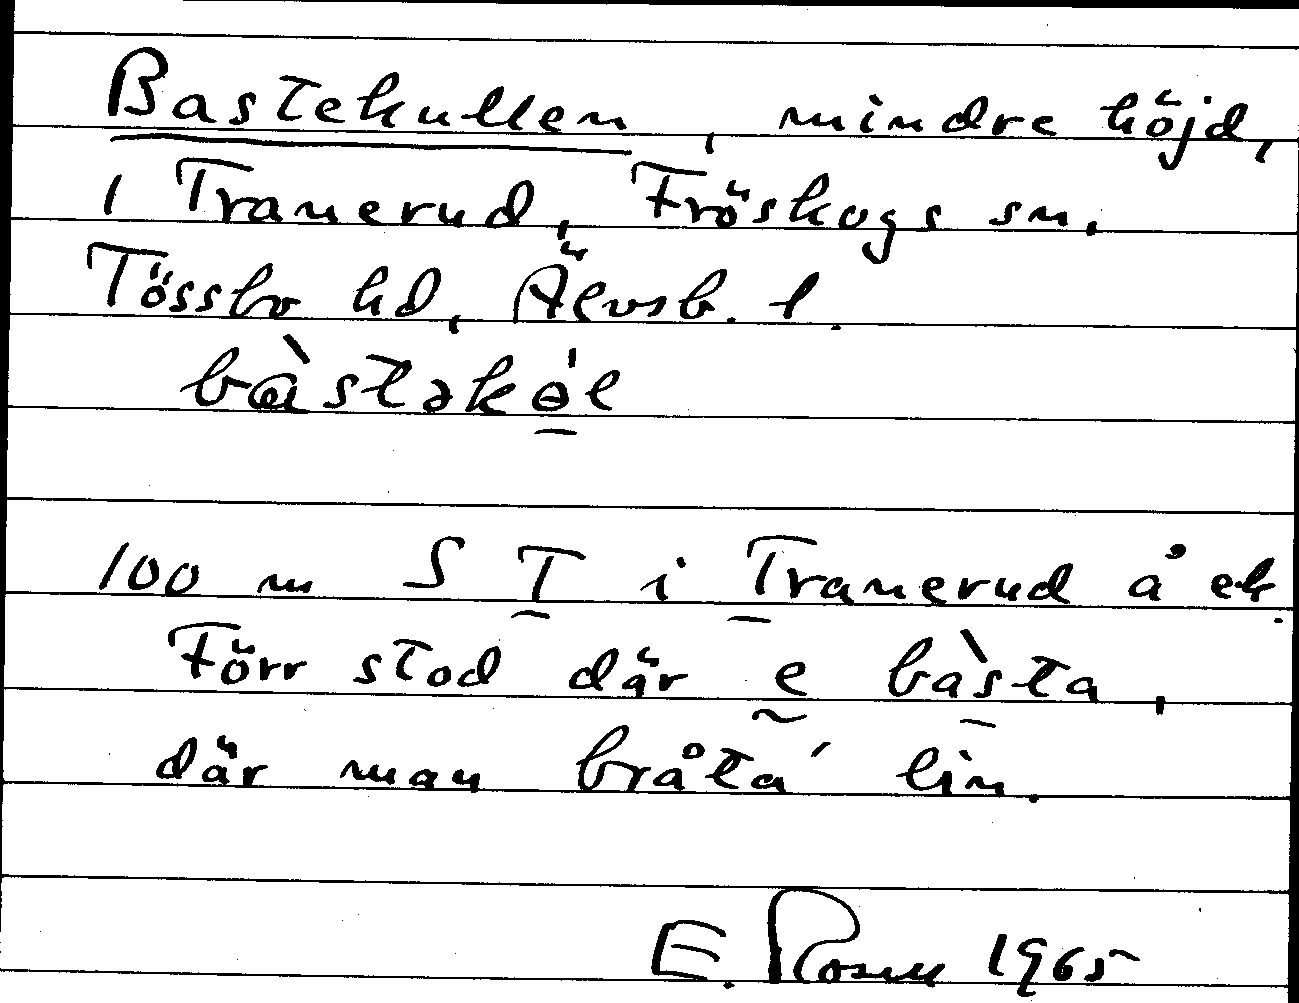 Bastekullen, mindre höjd,
i Tranerud, Fröskogs sn,
Tössbo hd, Älvsb. l.
bàstəkɵ̠'l
100 m S T̲ i T̲ranerud å ek.
Förr stod där ḛ bàs̲ta,
där man bråta' lin.
E. Rosell 1965